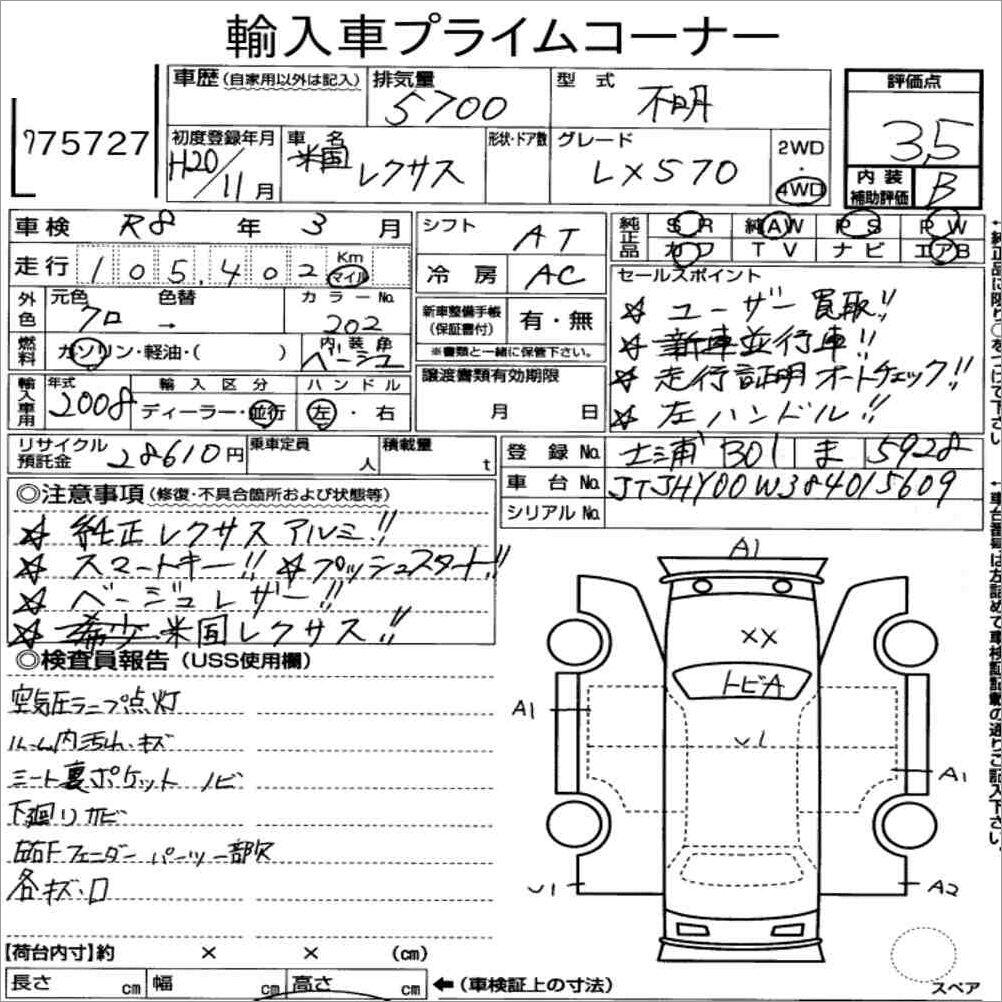 輸入車プライムコーナー
775727
車歴 (自家用以外は記入)
排気量
5700
型式
不明
評価点
3.5
初度登録年月
H20/11月
車名
米国 レクサス
形状・ドア数
グレード
LX570
2WD・4WD
内装補助評価
B
車検 R8年 3月
シフト AT
純正品 SR 純AW PS PW
カワ TV ナビ エアB
走行 105,402 Km マイル
冷房 AC
セールスポイント
☆ ユーザー買取!!
☆ 新車並行車!!
☆ 走行証明オートチェック!!
☆ 左ハンドル!!
外色 元色 クロ → 色替
カラーNo. 202
新車整備手帳(保証書付) 有・無
※書類と一緒に保管下さい。
燃料 ガソリン・軽油・( )
内装色 ベージュ
譲渡書類有効期限
月 日
輸入車用 年式 2008
輸入区分 ディーラー・並行
ハンドル 左・右
リサイクル預託金 28610円
乗車定員 人
積載量 t
登録No. 土浦 301 ま 5928
車台No. JTJHY00W384015609
シリアルNo.
◎注意事項 (修復・不具合箇所および状態等)
☆ 純正レクサスアルミ!!
☆ スマートキー!! ☆プッシュスタート!!
☆ ベージュレザー!!
☆ 希少米国レクサス!!
◎検査員報告 (USS使用欄)
空気圧ランプ点灯
ルーム内汚れ・キズ
シート裏ポケット ノビ
下廻りサビ
右Fフェンダーパーツ一部欠
各キズ・凹
A1
XX
トビA
A1
U1
A1
U1
A2
スペア
【荷台内寸】約 × × (cm)
長さ cm 幅 cm 高さ cm ←(車検証上の寸法)
←純正品に限り○をつけて下さい
←車台番号は左詰めで車検証記載の通りご記入下さい。